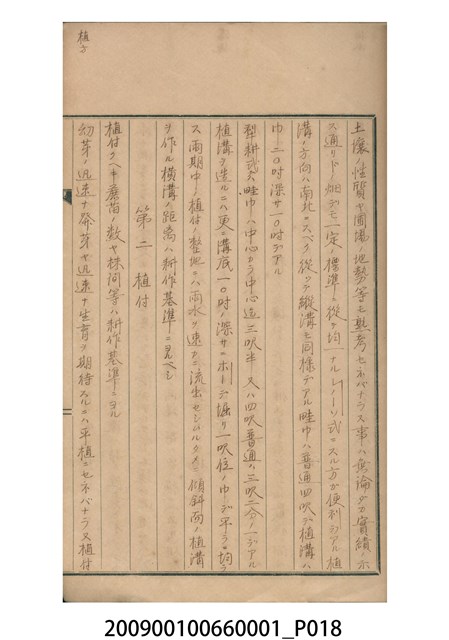 土壤ノ性質ヤ圃場ノ地勢等モ熟考セネバナラヌ事ハ無論ダガ實績ノ示
ス通リドノ畑デモ一定ノ標準ニ從ヒ均一ナルレノーソ式ニスル方ガ便利デアル植
溝ノ方向ハ南北ニスベク從ツテ縱溝モ同樣デアル畦巾ハ普通四呎デ植溝ハ
巾二〇吋深サ一〇吋デアル
犁耕式ハ畦巾ハ中心カラ中心迄三呎半又ハ四呎普通ハ三呎二分ノ一デアル
植溝ヲ造ルニハ更ニ溝底一〇吋ノ深サニホリ掘リ一呎位ノ巾デ平ラニ均ラ
ス雨期中ノ植付ノ整地ニハ雨水ヲ速カニ流出セシムルタメ傾斜面ノ植溝
ヲ作ル橫溝ノ距離ハ耕作基準ニヨルベシ
第二 植付
植付クベキ蔗苗ノ數ヤ株間等ハ耕作基準ニヨル
幼芽ノ迅速ナ發芽ヤ迅速ナ生育ヲ期待スルニハ平植ニセネバナラヌ植付
植方
200900100660001_P018